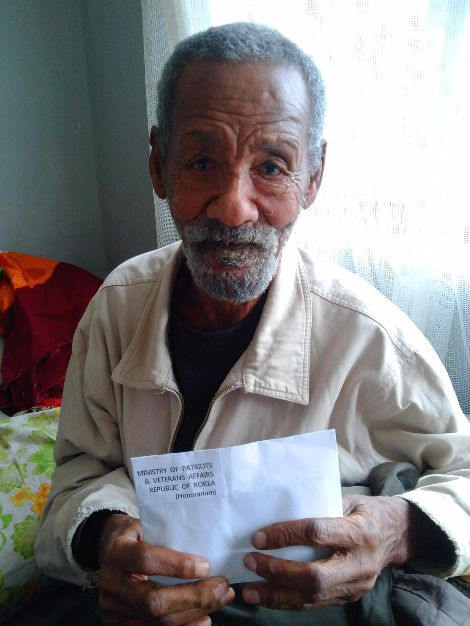 MINISTRY OF PATRIOTS
& VETERANS AFFAIRS
REPUBLIC OF KOREA
(Honorarium)